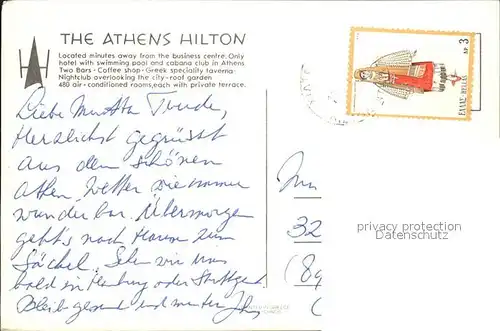 THE ATHENS HILTON
Located minutes away from the business centre. Only
hotel with swimming pool and cabana club in Athens
Two Bars - Coffee shop - Greek speciality taverna
Nightclub overlooking the city - roof garden
480 air - conditioned rooms, each with private terrace.
Liebe Trude,
Herzlichst gegrüsst
aus dem schönen
Athen. Wetter wie immer
wunderbar. Übermorgen
geht's nach Hause zum
Sehen wir uns
bald in Hamburg oder Stuttgart
Bleib gesund und munter
3
ΕΛΛΑΣ-HELLAS
32
(89
privacy protection
Datenschutz